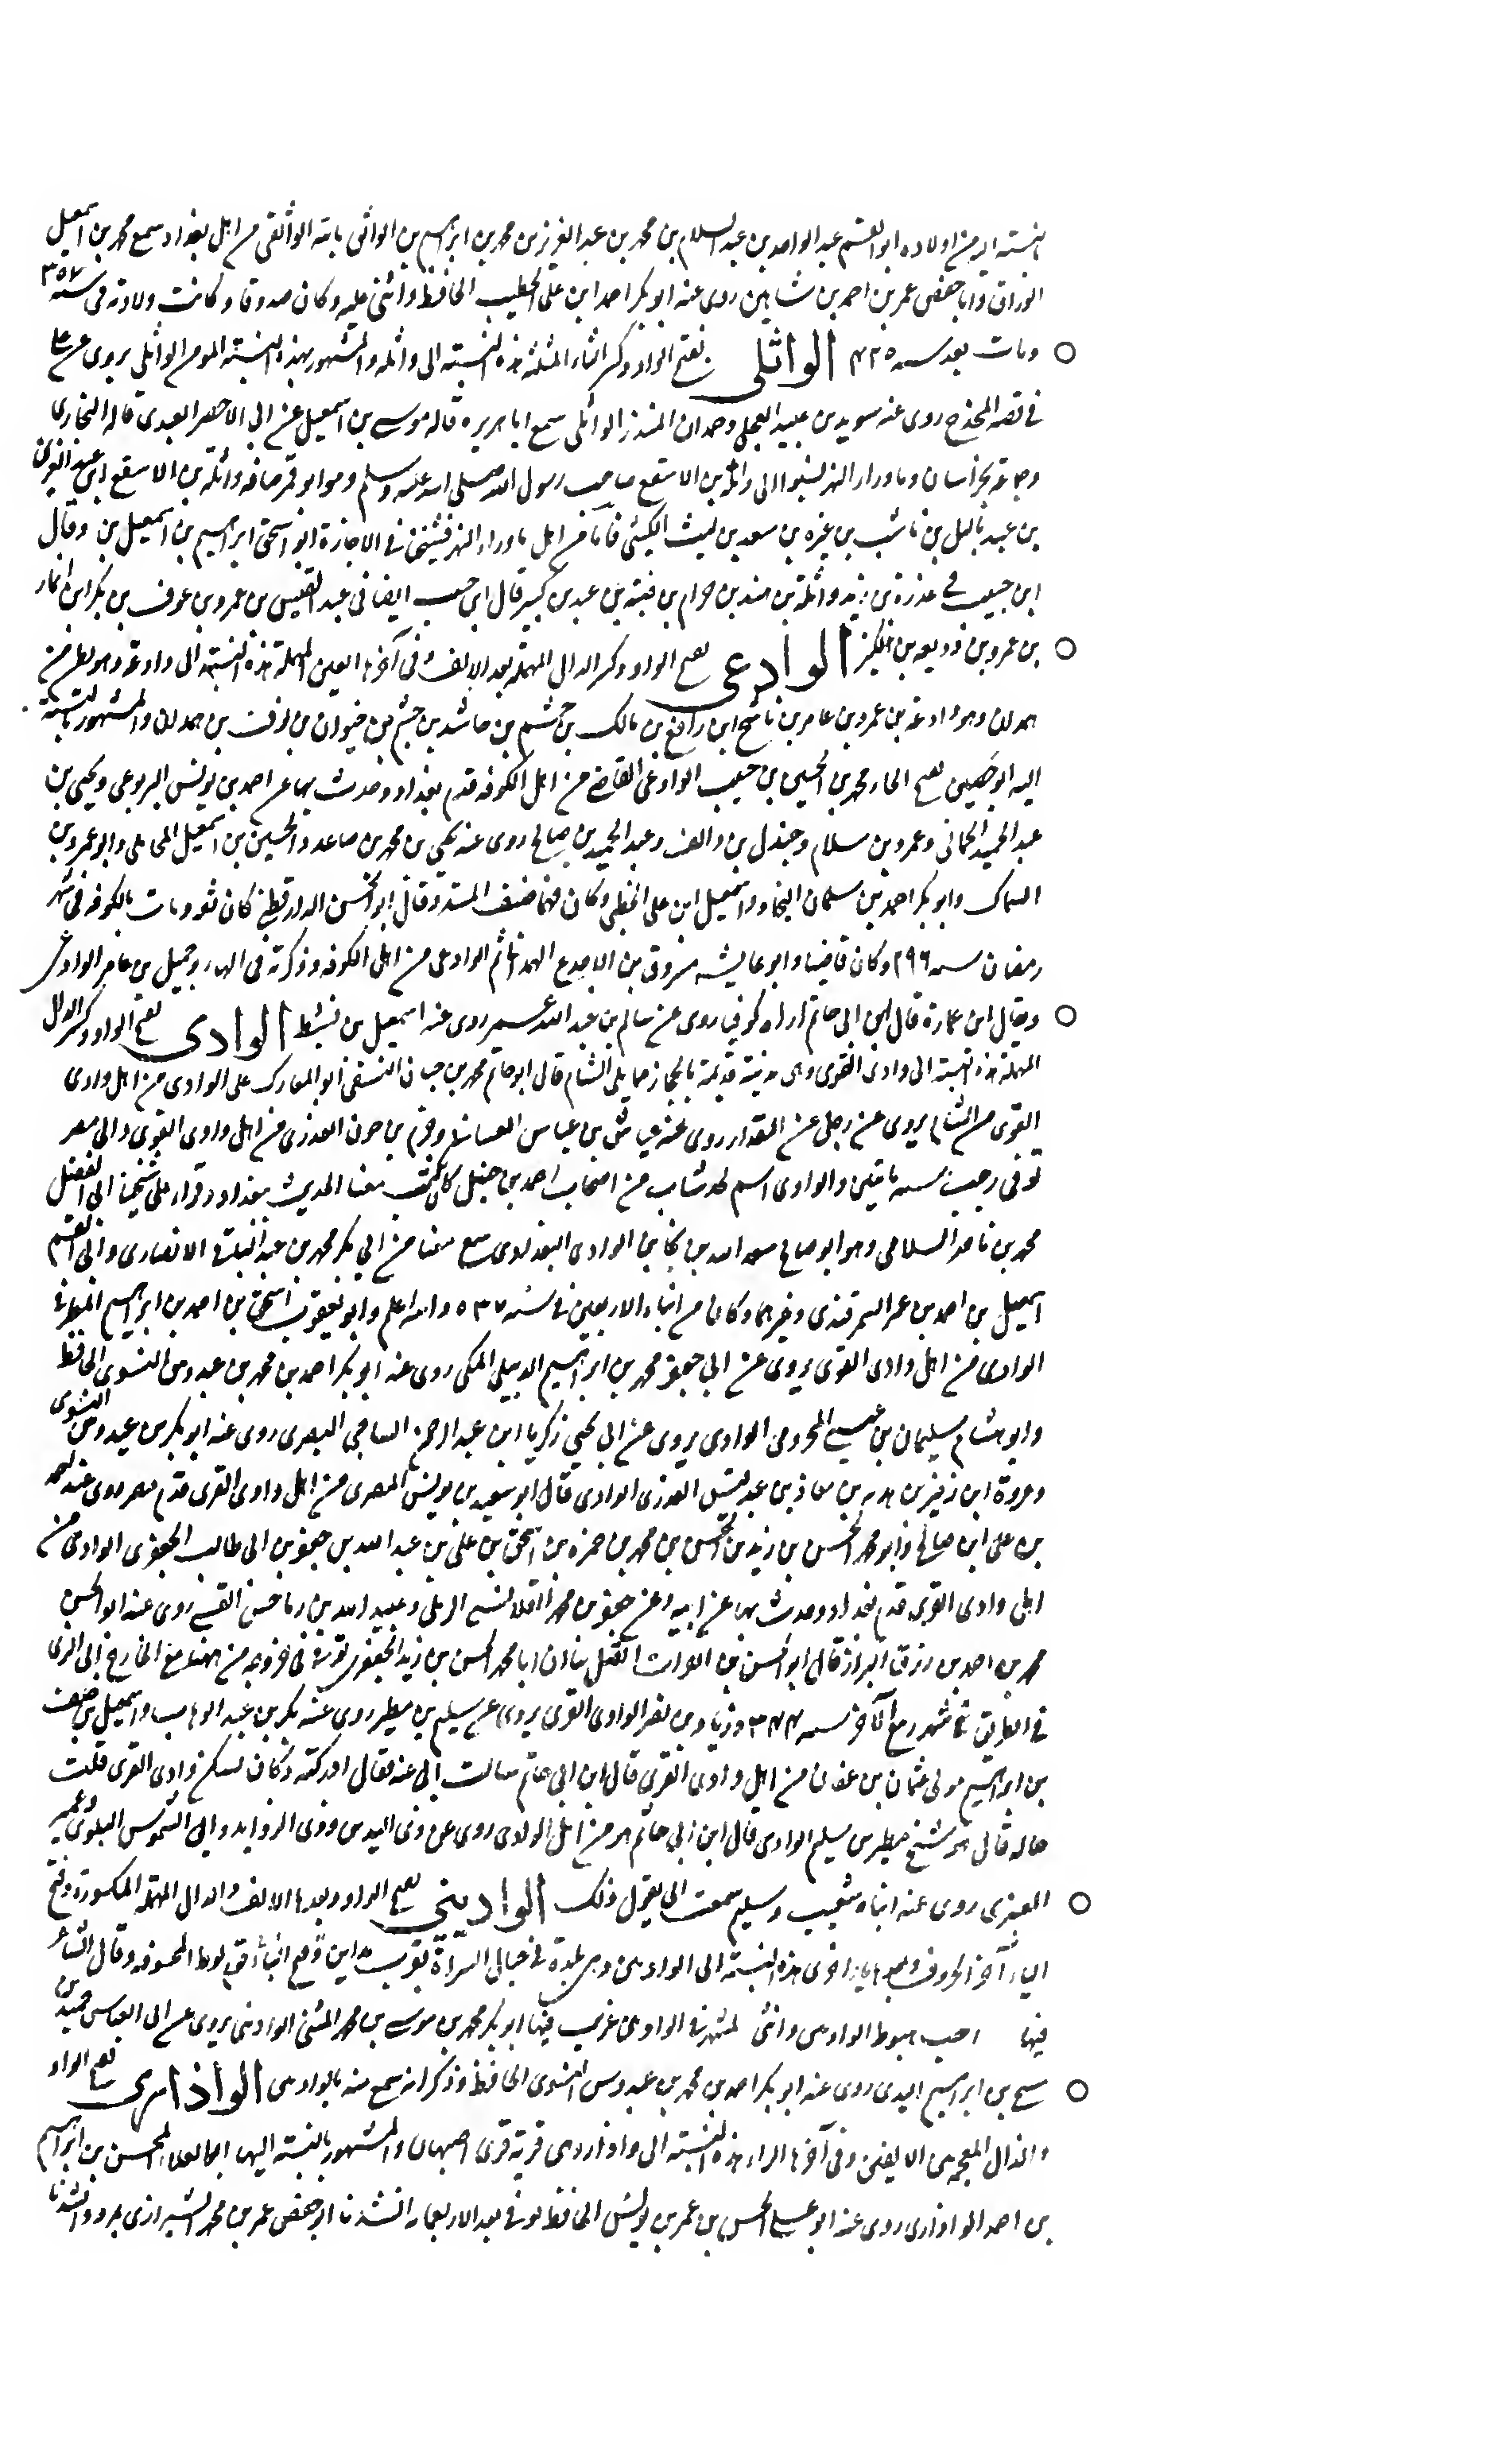 النسبة اليه من اولاده ابو القسم عبد الواحد بن عبد السلام بن محمد بن عبد العزيز بن محمد بن ابراهيم بن الواثق بالله الواثقي من اهل بغداد سمع محمد بن اسمعيل
الوراق وابا حفص عمر بن احمد بن شاهين روى عنه ابو بكر احمد ابن علي الخطيب الحافظ واثنى عليه وكان صدوقا وكانت ولادته في سنه ٣٥٧
ومات بعد سنه ٤٢٥ الواثلى بفتح الواو وكسر الثاء المثلثه هذه النسبته الى واثله والمشهور بهذه النسبته المومن الواثلي يروى عن على
في قصه المخدج روى عنه سويد بن عبيد العجلي وحمدان المنذر الواثلى سمع ابا هريره قاله موسى بن اسمعيل عن ابي الاحصر العبدى قاله البخارى
وجماعة بخراسان وماوراء النهر نسبوا الى واثلة بن الاسقع صاحب رسول الله صلى الله عليه وسلم وهو ابو قرصافه واثلة بن الاسقع ابن عبد العزى
بن عبد ياليل بن ناشب بن غيرة بن سعد بن ليث الليثي فاما من اهل ماوراء النهر فشيخنا في الاجازة ابو اسحق ابراهيم بن اسمعيل بن وقال
ابن حبيب في عذرة بن زيد واثلة بن هند بن حرام بن ضنة بن عبد بن كبير قال ابن حبيب ايضا في عبد القيس بن عمرو بن عوف بن بكر ابن انمار
بن عمرو بن وديعه بن لكيز الوادعى بفتح الواو وكسر الدال المهملة بعد الالف وفي آخرها العين المهملة هذه النسبته الى وادعة وهو بطن من
همدان وهو وادعة بن عمرو بن عامر بن ناشج ابن رافع بن مالك بن جشم بن حاشد بن جشم بن خيوان بن نوف بن همدان والمشهور بالنسبة
اليه ابو حصين بفتح الحاء محمد بن الحسين بن حبيب الوادعى القاضى من اهل الكوفه قدم بغداد وحدث بها عن احمد بن يونس اليربوعى ويحيى بن
عبد الحميد الحمانى وعمرو بن سلام وجندل بن والق وعبد الحميد بن صالح روى عنه يحيى بن محمد بن صاعد والحسين بن اسمعيل المحاملى وابو عمرو بن
السماك وابو بكر احمد بن سلمان النجاد واسمعيل ابن على الخطبي وكان فهما صنف المسند وقال ابو الحسن الدارقطنى كان ثقه ومات بالكوفه في شهر
رمضان سنه ٢٩٦ وكان قاضيا وابو عايشه مسروق بن الاجدع الهمدانى ثم الوادعى من اهل الكوفه وذكرته في الهاء وجميل بن عامر الوادعى
ويقال ابن عمارة قال ابن ابى حاتم اراه كوفي روى عن سالم بن عبد الله بن عمر روى عنه اسمعيل بن نشيط الوادى بفتح الواو وكسر الدال
المهملة هذه النسبته الى وادى القرى وهى مدينة قديمة بالحجاز مما يلى الشام قال ابو حاتم محمد بن حبان النسفى ابو المعارك على الوادى من اهل وادى
القرى من الشام يروى عن رجل عن المقداد روى عنه عياش بن عباس الغسانى وقرم بن حرن العذرى من اهل وادى القرى والى مصر
توفى رجب سنه مايتين والوادى اسم لحد شاب من اصحاب احمد بن حنبل كان يكتب معنا الحديث ببغداد وقرا على شيخنا ابى الفضل
محمد بن ناصر السلامى وهو ابو صالح سعد الله بن نجا بن الوادى البغدادى سمع معنا من ابي بكر محمد بن عبد الباقى الانصارى وابي القسم
اسمعيل بن احمد بن عمر السمرقندى وغيرهما وكان من ابناء الاربعين في سنه ٥٣٧ والله اعلم وابو يعقوب اسحق بن احمد بن ابراهيم
الوادى من اهل وادى القرى يروى عن ابي جعفر محمد بن ابراهيم الديبلى المكى روى عنه ابو بكر احمد بن محمد بن عبدوس النسوى الحافظ
وابو هشام سليمان بن عيسى المخزومى الوادى يروى عن ابي يحيى زكريا ابن عبد الرحمن الساجى البصرى روى عنه ابو بكر بن عبدوس النسوى
وعروة ابن زفير بن هدبه بن معاذ بن عبد العذرى الوادى قال ابو سعيد بن يونس المصرى من اهل وادى القرى قدم مصر روى عنه احمد
بن على ابن صالح وابو محمد الحسن بن زيد بن الحسن بن محمد بن حمزه بن اسحق بن على بن عبد الله بن جعفر بن ابى طالب الجعفرى الوادى من
اهل وادى القرى قدم بغداد وحدث بها عن ابيه وعن جعفر بن محمد القلانسى الرملى وعبيد الله بن رماحس القيسى روى عنه ابو الحسن
محمد بن احمد بن رزق البزاز قال ابو الحسن بن الفرات اتصل بنا ان ابا محمد الحسن بن زيد الجعفرى توفى في خروجه من مع الخارج الى الرى
في الطريق في شهر ربيع الآخر سنه ٣٤٤ وزياد بن نصر الوادى القرى يروى عن سليم بن مطير روى عنه بكر بن عبد الوهاب واسمعيل بن
بن ابراهيم مولى عثمان بن عفان من اهل وادى القرى قال ابن ابي حاتم سالت ابي عنه فقال ادركته وكان يسكن وادى القرى قلت
حاله قال هو شيخ مطير بن سليم الوادى قال ابن ابي حاتم هو من اهل الوادى روى عن ذى اليدين وذى الزوايد وابى الشموس البلوى وعمير
العنبرى روى عنه ابناه شعيب وسليم سمعت ابى يقول ذلك الواديني بفتح الواو وبعدها الالف والدال المهملة المكسورة وفتح
الياء آخر الحروف وبعدها ياء اخرى هذه النسبته الى الواديين وهى بلدة في جبال السراة بقرب مداين قوم لوط المخسوفه وقال الشاعر
فيها احب هبوط الواديين وانني لمشتهر في الواديين غريب فيها ابو بكر محمد بن موسى بن محمد المثنى الوادينى يروى عن ابى العباس حميد بن
سبح بن ابراهيم روى عنه ابو بكر احمد بن محمد بن عبدوس النسوى الحافظ وذكر انه سمع منه بالواديين الواذارى بفتح الواو
والذال المعجمه بين الالفين وفي آخرها الراء هذه النسبته الى واذار وهى قرية قرى اصبهان والمشهور بالنسبته اليها ابو العلاء المحسن بن ابراهيم
بن احمد الواذارى روى عنه ابو على الحسن بن عمر بن يونس الحافظ توفى بعد الاربعمايه انشدنا ابو حفص عمر بن محمد الشيرازى بمرو انشدنا